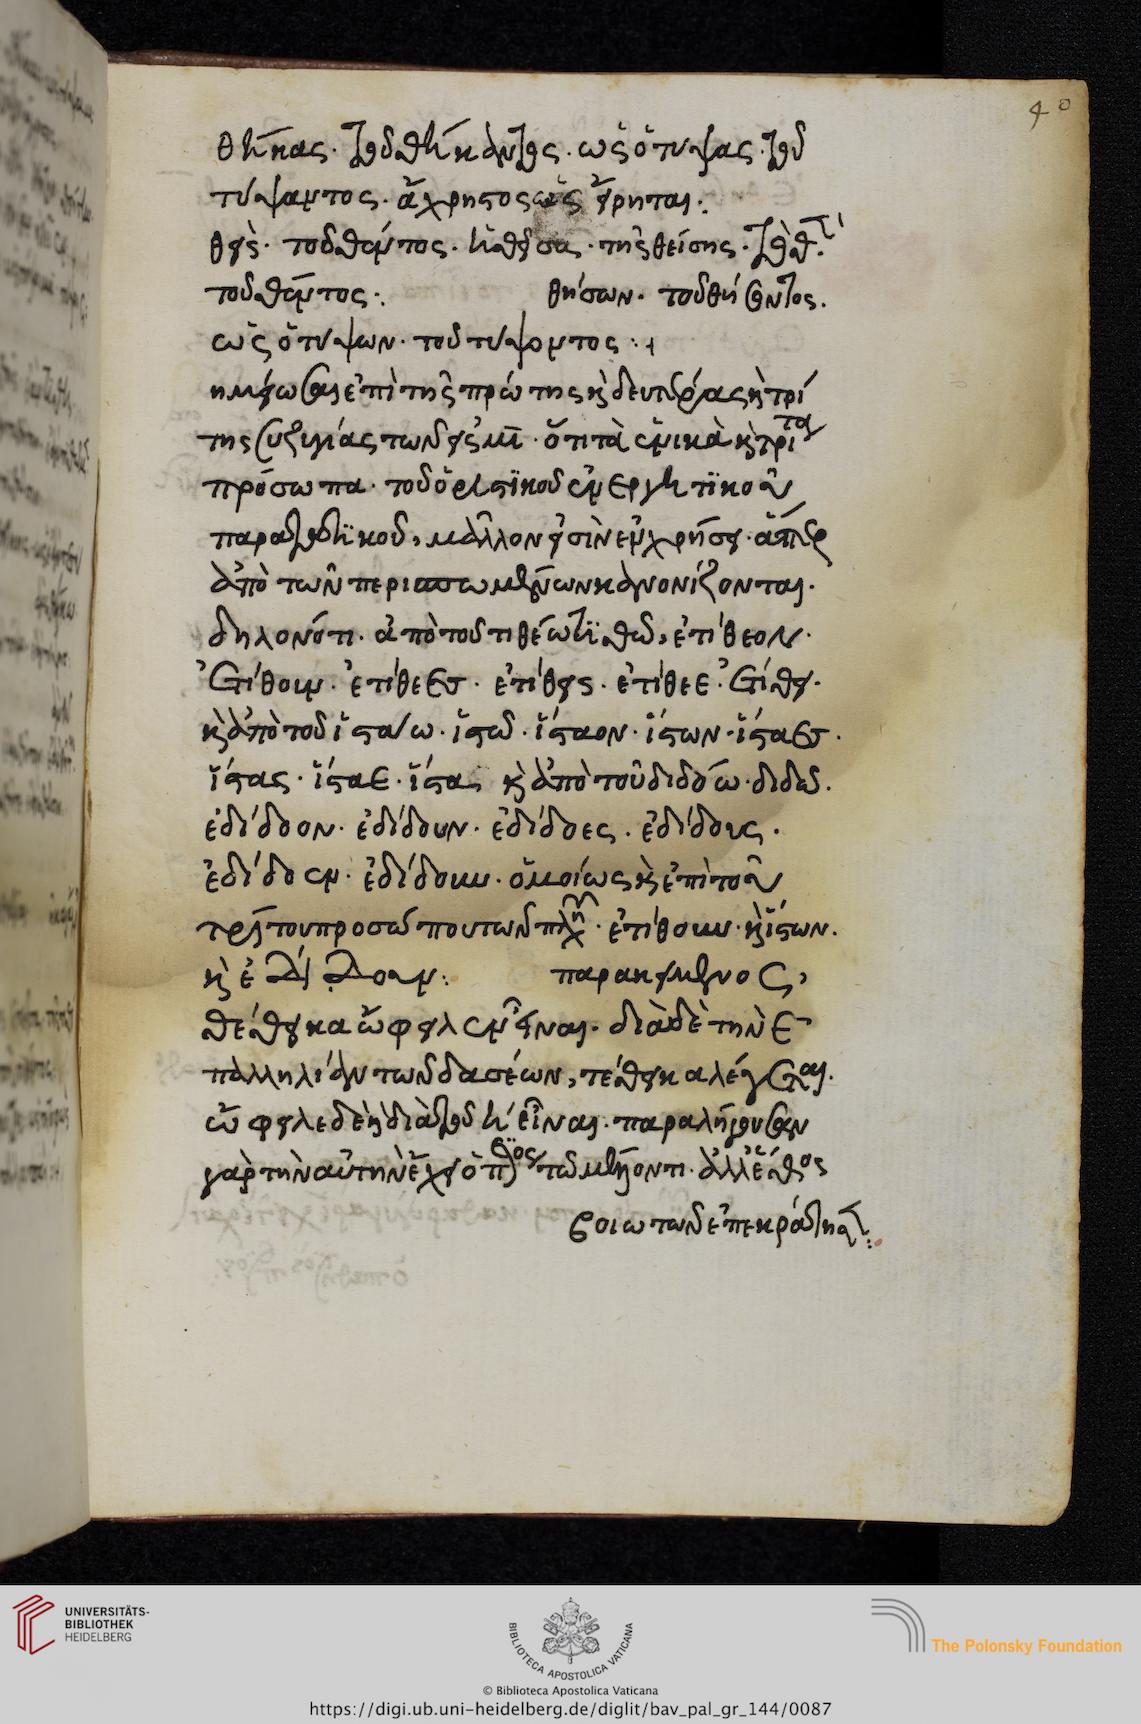 40
θήκας. τοῦ θήκαντος. ὡς ὁ τύψας. τοῦ
τύψαντος. ἄχρηστος ὡς εἴρηται:
θείς. τοῦ θέντος. ἡ θεῖσα. τῆς θείσης. τὸ θέν.
τοῦ θέντος: θήσων. τοῦ θήσοντος.
ὡς ὁ τύψων. τοῦ τύψοντος:
σημείωσαι ἐπὶ τῆς πρώτης κ δευτέρας κ τρί
της συζυγίας τῶν εἰς μι. ὅτι τὰ ἑνικὰ κ τρίτα
πρόσωπα. τοῦ ὁριστικοῦ ἐνεργητικοῦ
παρατατικοῦ, μᾶλλον εἰσὶν ἐν χρήσει. ἅπερ
ἀπὸ τῶν περισπωμένων κανονίζονται.
δηλονότι. ἀπὸ τοῦ τιθέω τιθῶ, ἐτίθεον.
ἐτίθουν. ἐτίθεες. ἐτίθεις. ἐτίθεε. ἐτίθει.
κ ἀπὸ τοῦ ἱστάω. ἱστῶ. ἵσταον. ἵστων. ἵσταες.
ἵστας. ἵσταε. ἵστα κ ἀπὸ τοῦ διδόω. διδῶ.
ἐδίδοον. ἐδίδουν. ἐδίδοες. ἐδίδους.
ἐδίδοεν. ἐδίδουν. ὁμοίως κ ἐπὶ τοῦ
τρίτου προσώπου τῶν πλη. ἐτίθουν. κ ἵστων.
κ ἐδίδουν: παρακείμενος,
θέθεικα ὤφειλεν εἶναι. διὰ δὲ τὴν ἐ
παλληλίαν τῶν δασέων, τέθεικα λέγεται.
ὤφειλε δὲ κ διὰ τοῦ η εἶναι. παραλήγουσαν
γὰρ τὴν αὐτὴν ἔχει ὁ πλος τῷ μέλλοντι. ἀλλ' ἔθος
βοιωτῶν ἐπεκράτησε:
UNIVERSITÄTS-
BIBLIOTHEK
HEIDELBERG
BIBLIOTECA APOSTOLICA VATICANA
The Polonsky Foundation
© Biblioteca Apostolica Vaticana
https://digi.ub.uni-heidelberg.de/diglit/bav_pal_gr_144/0087